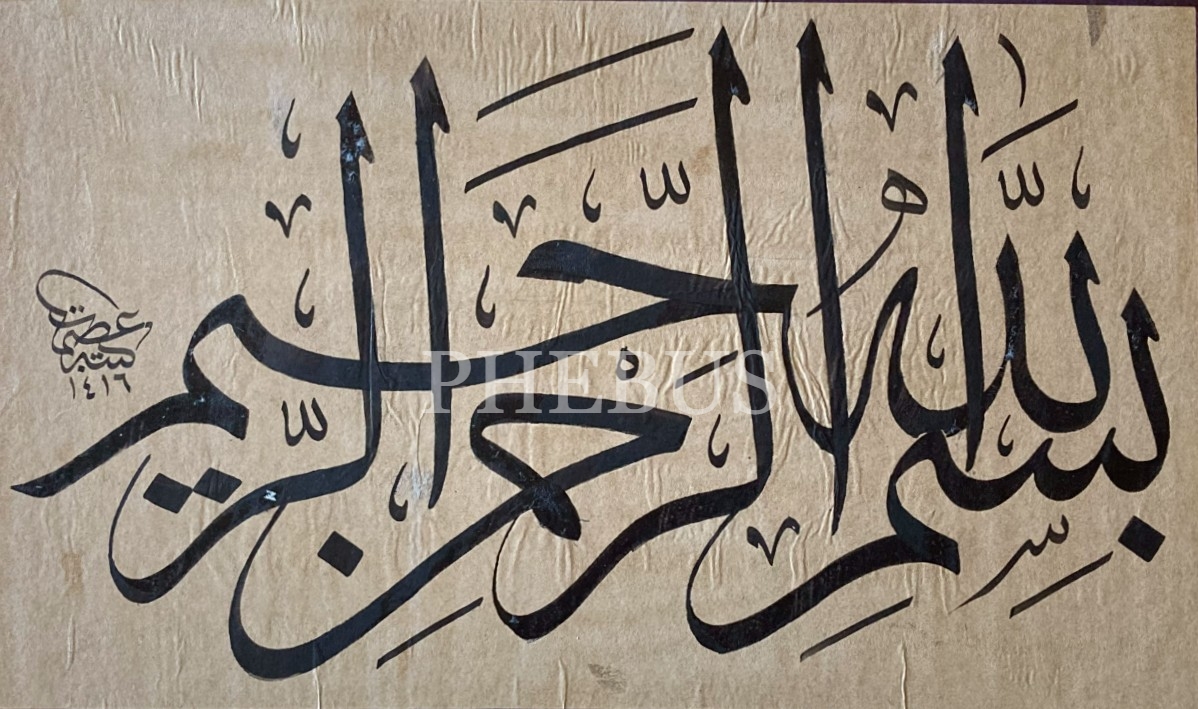 بسم الله الرحمن الرحيم
كتبه عصمت
١٤١٦
PHEBUS